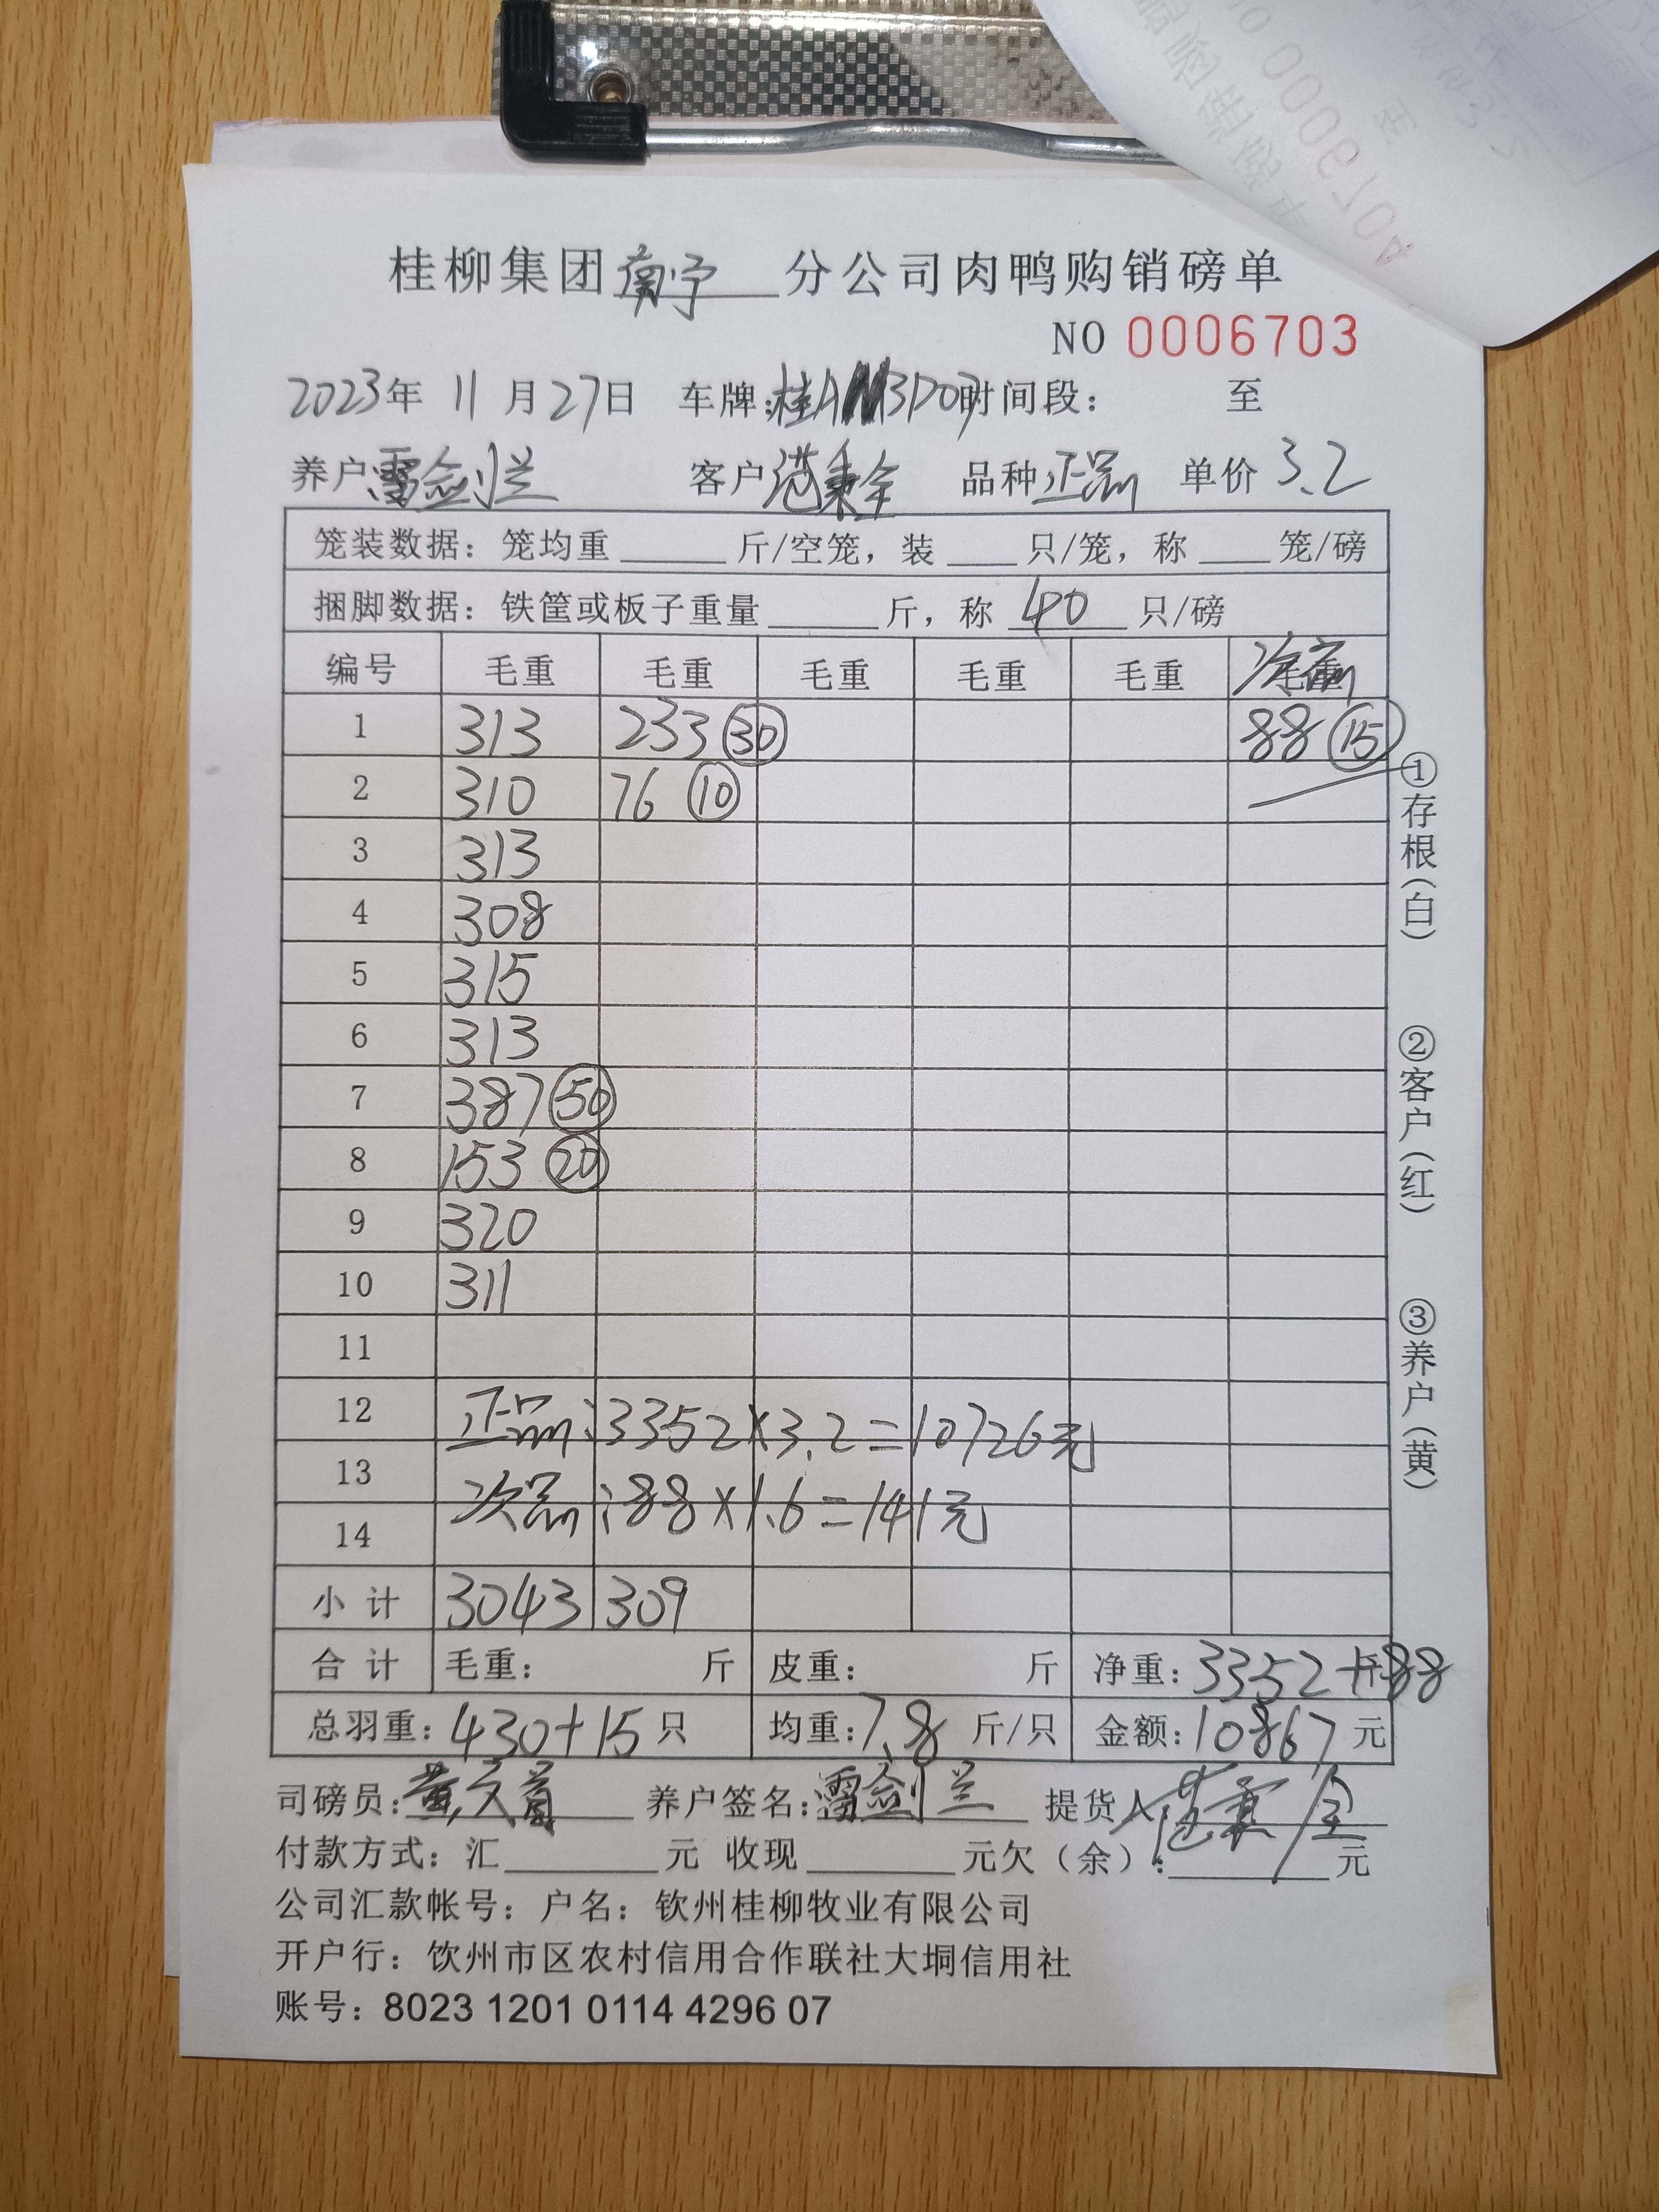 桂柳集团南宁分公司肉鸭购销磅单
NO 0006703
2023年 11月27日 车牌:桂A 3D07 时间段: 至
养户 雷剑兰 客户 范秉全 品种 正品 单价 3.2
笼装数据: 笼均重 斤/空笼, 装 只/笼, 称 笼/磅
捆脚数据: 铁筐或板子重量 斤, 称 40 只/磅
编号 毛重 毛重 毛重 毛重 毛重 毛重
1 313 233 30 88 15
2 310 76 10
3 313
4 308
5 315
6 313
7 387 50
8 153 20
9 320
10 311
11
12 正品:3352×3.2=10726元
13 次品:88×1.6=141元
14
小计 3043 309
合计 毛重: 斤 皮重: 斤 净重:3352+88斤
总羽重:430+15只 均重:7.8斤/只 金额:10867元
司磅员: 养户签名:雷剑兰 提货人 范秉全
付款方式: 汇 元 收现 元欠(余): 元
公司汇款帐号: 户名: 钦州桂柳牧业有限公司
开户行: 饮州市区农村信用合作联社大垌信用社
账号: 8023 1201 0114 4296 07
①存根(白)
②客户(红)
③养户(黄)